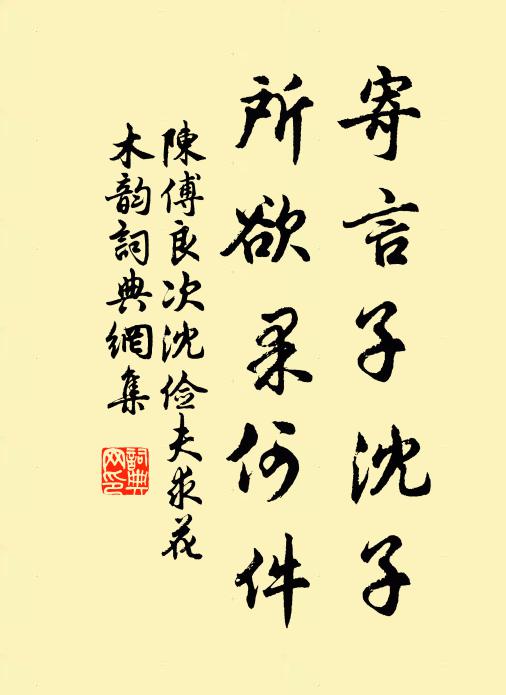 寄言子沈子
所欲果何件
陳傅良次沈儉夫求花
木韵詞典網集
詞典網印